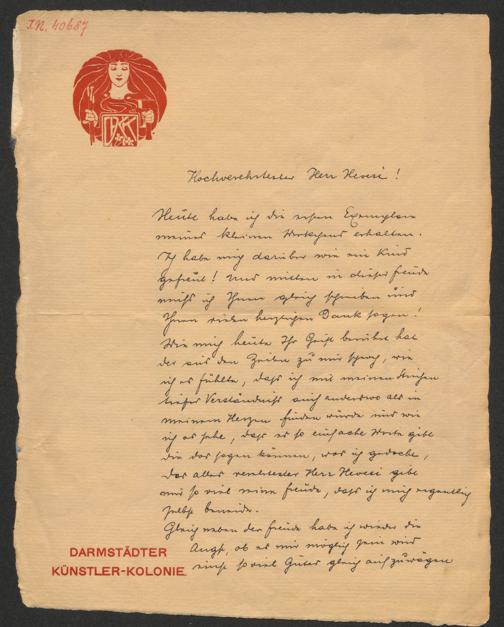 I.N. 40687
DKK
Hochverehrtester Herr Hevesi!
Heute habe ich die ersten Exemplare
meines kleinen Werkchens erhalten.
Ich habe mich darüber wie ein Kind
gefreut! Und mitten in dieser Freude
muß ich Ihnen gleich schreiben und
Ihnen vielen herzlichen Dank sagen!
Wie mich heute Ihr Geist berührt hat
der aus den Zeilen zu mir sprach, wie
ich es fühlte, daß ich mit meinen
tiefes Verständniss auch anderswo als in
meinem Herzen finden würde und wie
ich es sehe, daß es so einfache Worte gibt
die das sagen können, was ich gedacht,
das alles verehrtester Herr Hevesi gibt
mir so viel reine Freude, daß ich mich eigentlich
selbst beneide.
Gleich neben der Freude habe ich wieder die
Angst, ob es mir möglich sein wird
so viel Gutes gleich aufzuwägen
DARMSTÄDTER
KÜNSTLER-KOLONIE.